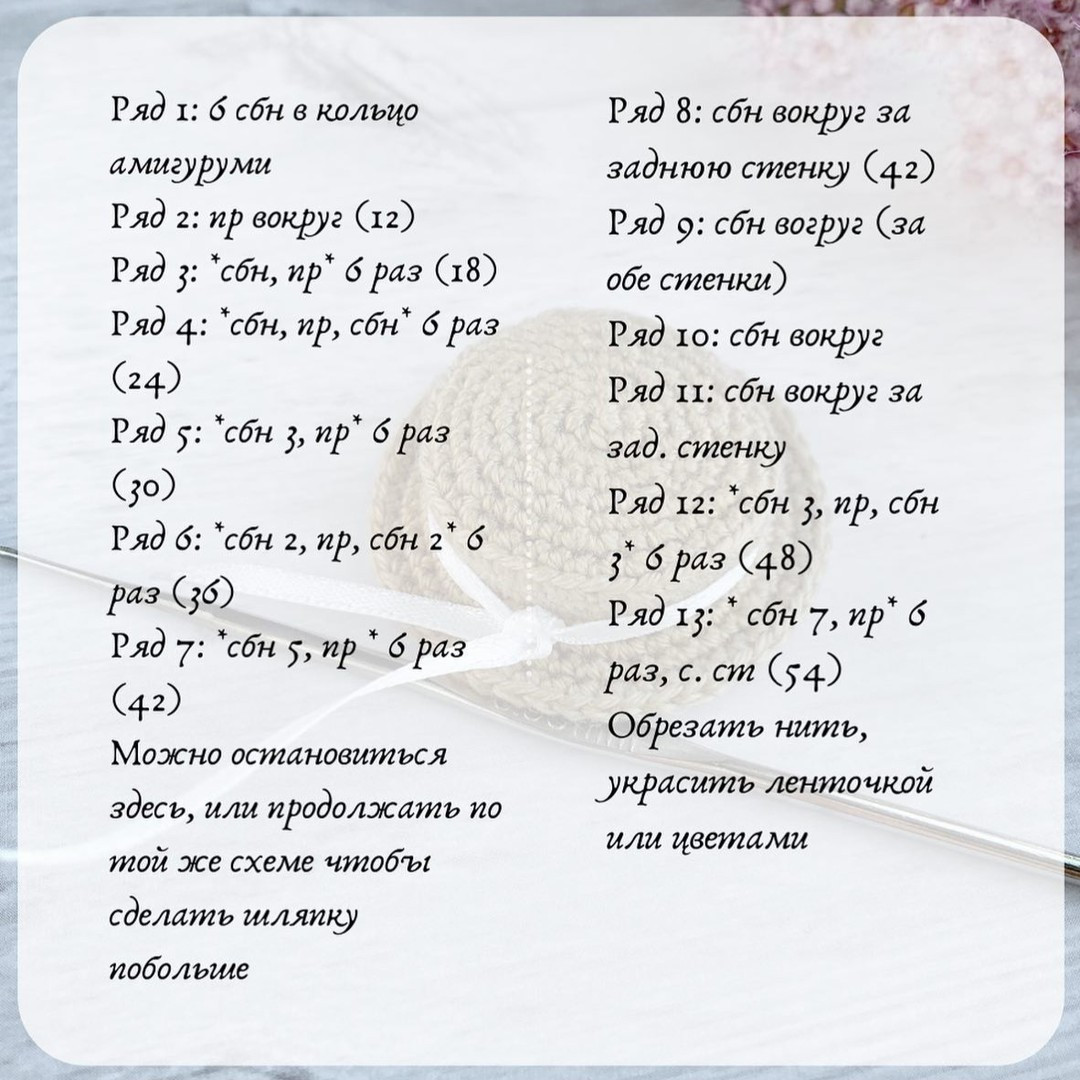 Ряд 1: 6 сбн в кольцо
амигуруми
Ряд 2: пр вокруг (12)
Ряд 3: *сбн, пр* 6 раз (18)
Ряд 4: *сбн, пр, сбн* 6 раз
(24)
Ряд 5: *сбн 3, пр* 6 раз
(30)
Ряд 6: *сбн 2, пр, сбн 2* 6
раз (36)
Ряд 7: *сбн 5, пр * 6 раз
(42)
Можно остановиться
здесь, или продолжать по
той же схеме чтобы
сделать шляпку
побольше
Ряд 8: сбн вокруг за
заднюю стенку (42)
Ряд 9: сбн вогруг (за
обе стенки)
Ряд 10: сбн вокруг
Ряд 11: сбн вокруг за
зад. стенку
Ряд 12: *сбн 3, пр, сбн
3* 6 раз (48)
Ряд 13: * сбн 7, пр* 6
раз, с. ст (54)
Обрезать нить,
украсить ленточкой
или цветами